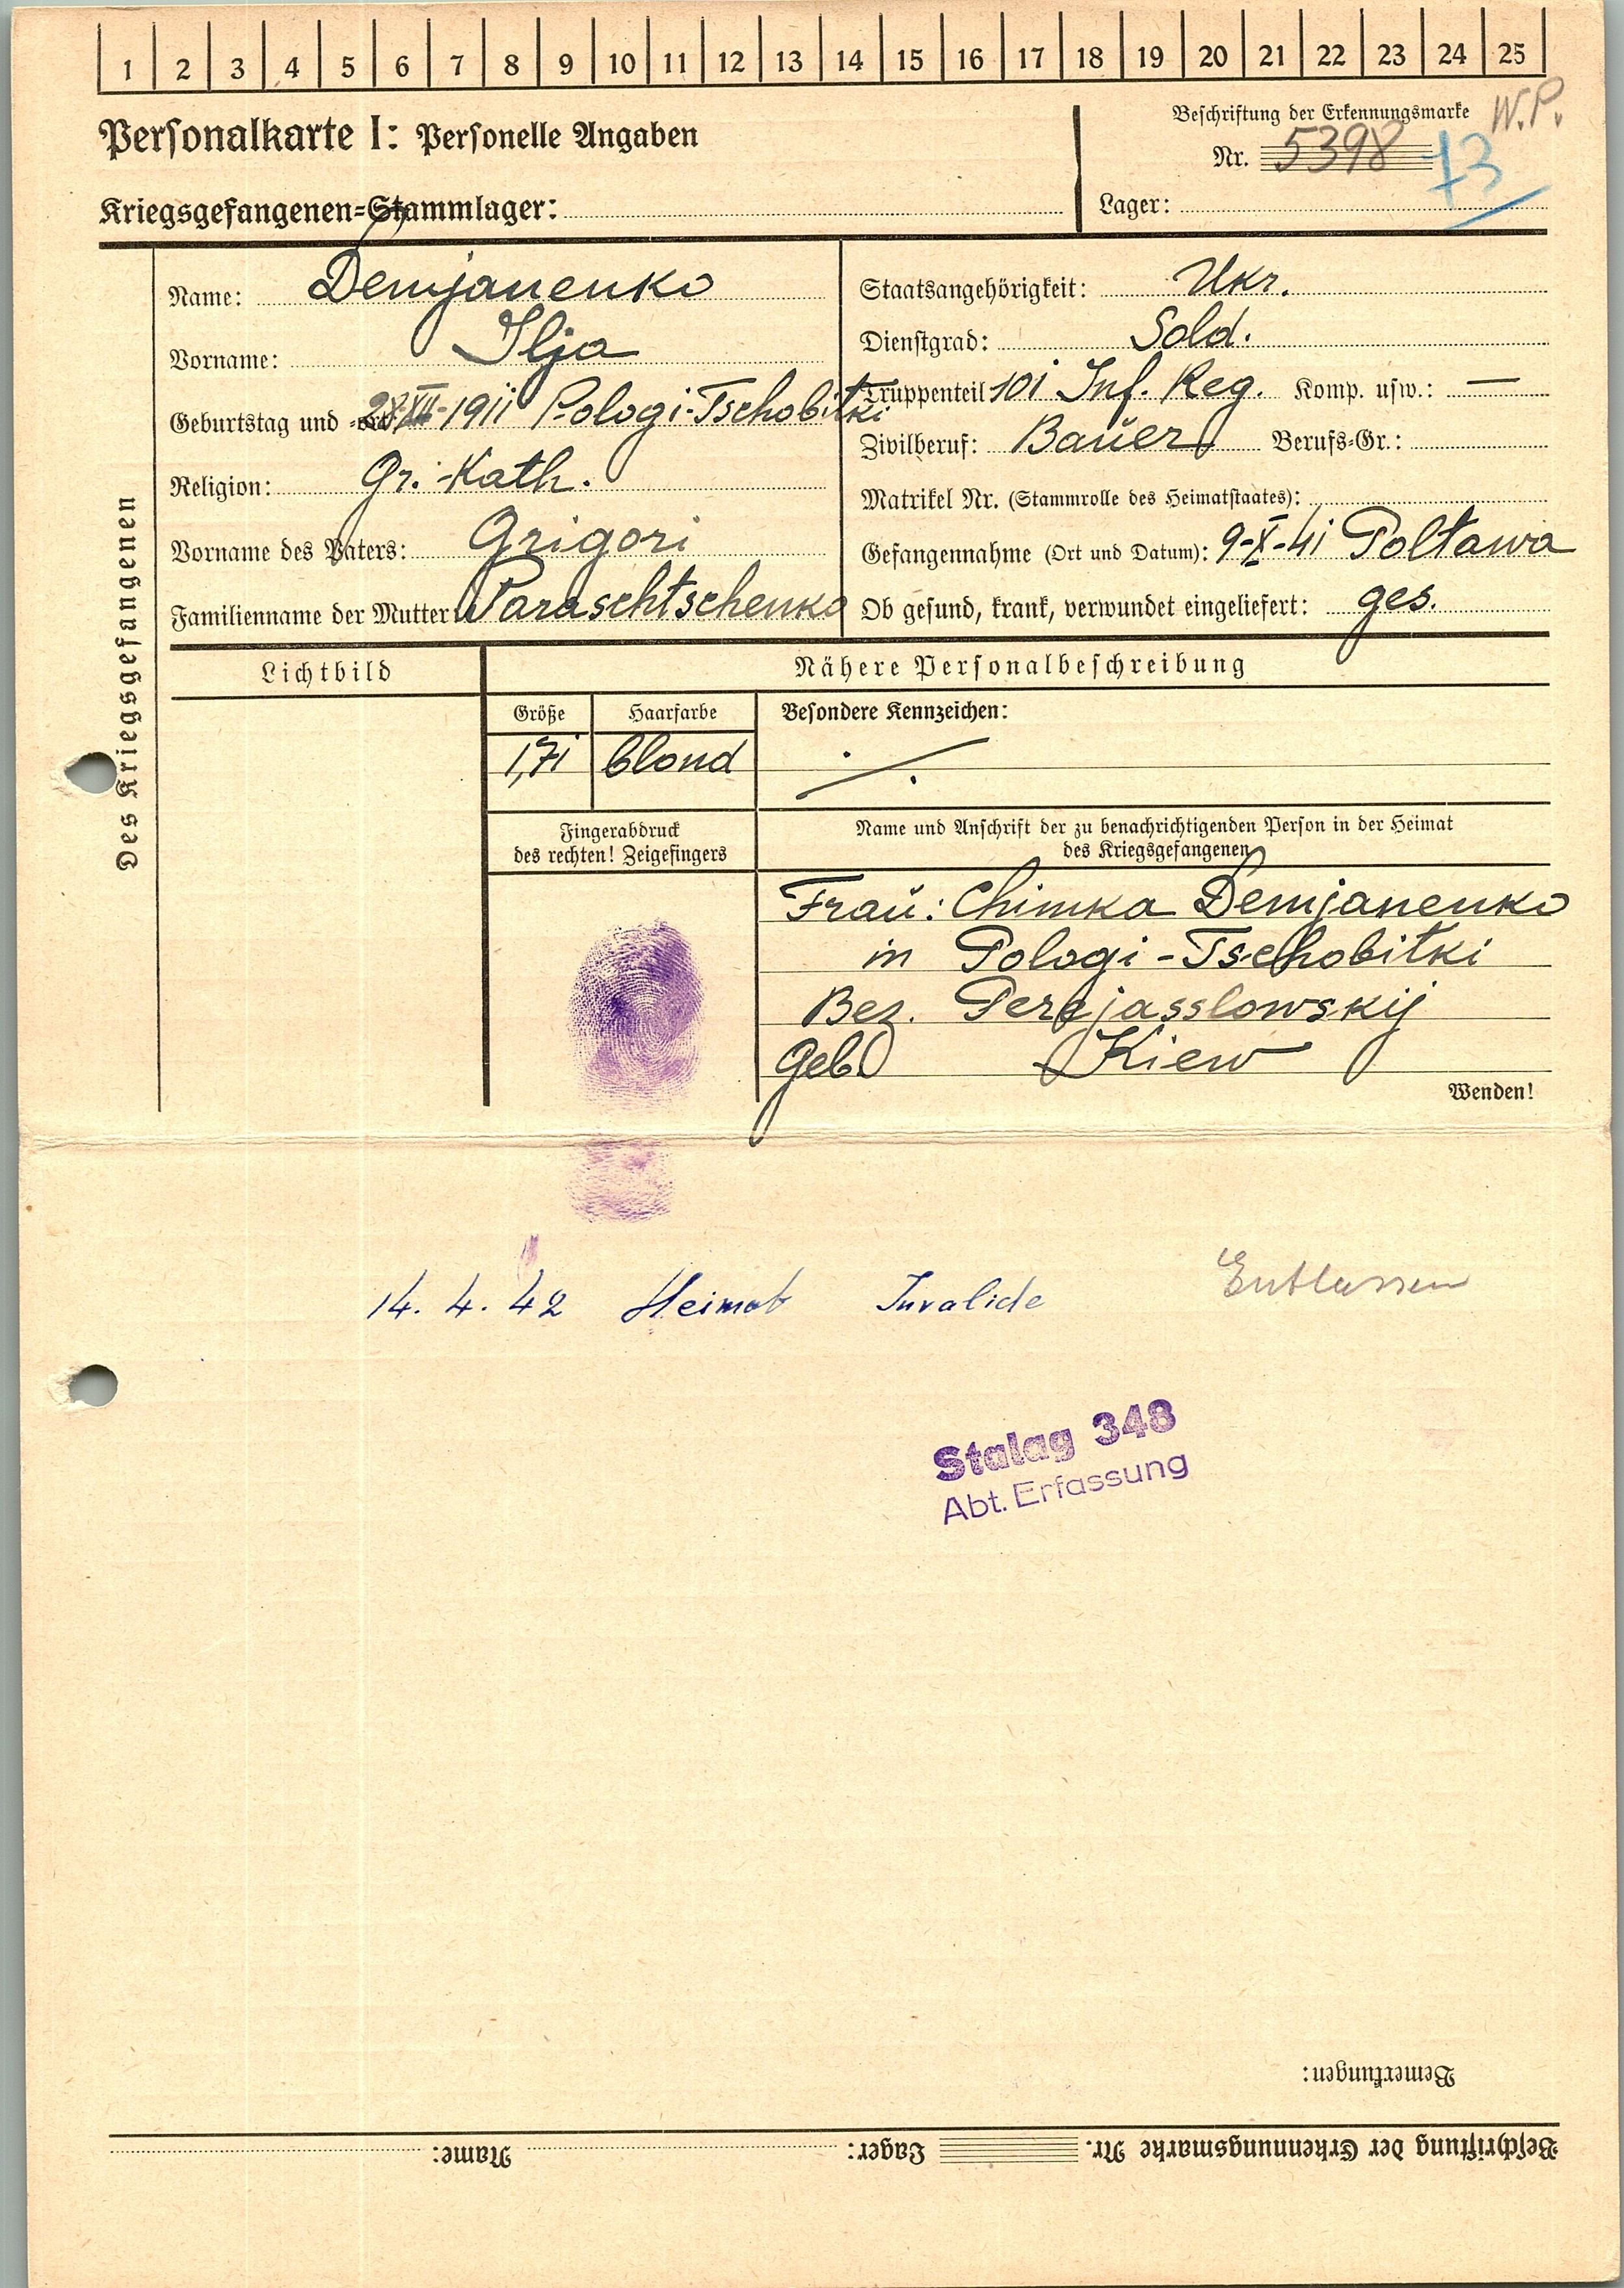 1 2 3 4 5 6 7 8 9 10 11 12 13 14 15 16 17 18 19 20 21 22 23 24 25
Personalkarte I: Personelle Angaben
Kriegsgefangenen=Stammlager:
Beschriftung der Erkennungsmarke W.P.
Nr. 5398
73
Lager:
Des Kriegsgefangenen
Name: Demjanenko
Vorname: Ilja
Geburtstag und =ort XII-1911 Pologi-Tschobitki
Religion: Gr.-Kath.
Vorname des Vaters: Grigori
Familienname der Mutter: Paraschtschenko
Staatsangehörigkeit: Ukr.
Dienstgrad: Sold.
Truppenteil 101 Inf. Reg. Komp. usw.: —
Zivilberuf: Bauer Berufs=Gr.:
Matrikel Nr. (Stammrolle des Heimatstaates):
Gefangennahme (Ort und Datum): 9-X-41 Poltawa
Ob gesund, krank, verwundet eingeliefert: ges.
Lichtbild
Nähere Personalbeschreibung
Größe Haarfarbe Besondere Kennzeichen:
1,71 blond ./.
Fingerabdruck
des rechten! Zeigefingers
Name und Anschrift der zu benachrichtigenden Person in der Heimat
des Kriegsgefangenen
Frau: Chimka Demjanenko
in Pologi-Tschobitki
Bez. Perejasslowskij
Geb. Kiew
Wenden!
14. 4. 42 Heimat Invalide Entlassen
Stalag 348
Abt. Erfassung
Bemerkungen:
Beschriftung der Erkennungsmarke Nr. Lager: Name: